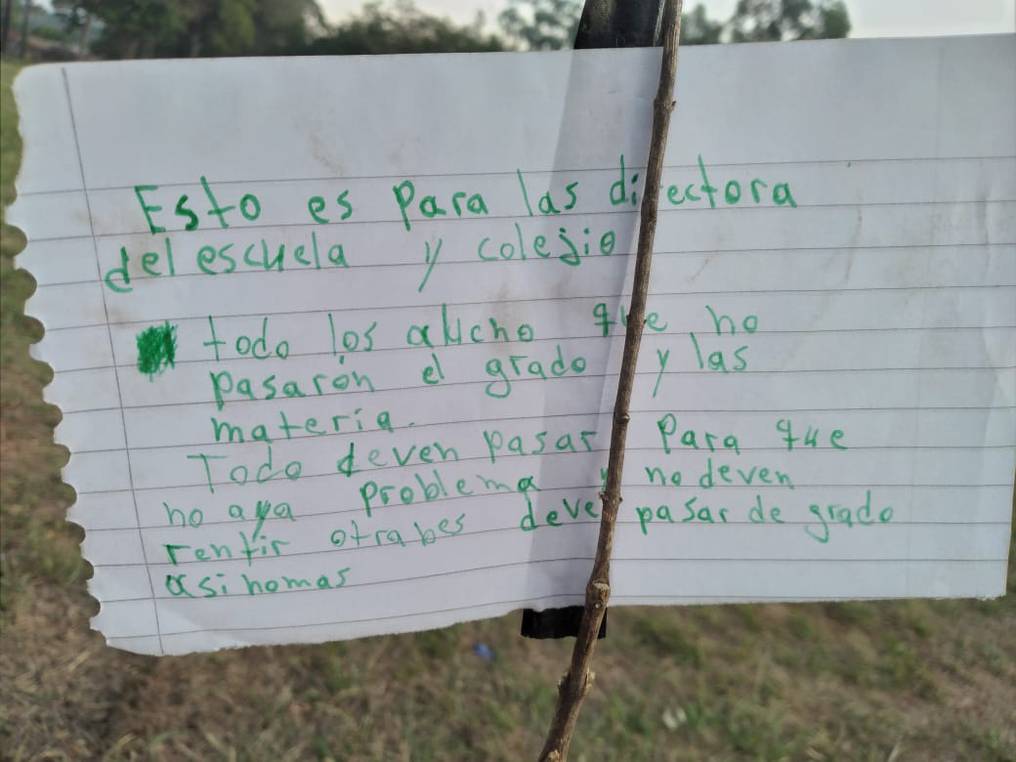 Esto es para las directora
del escuela y colejio
todo los alucno que no
pasarón el grado y las
materia.
Todo deven pasar Para que
no aya problema y no deven
rentir otrabes deve pasar de grado
asi nomas